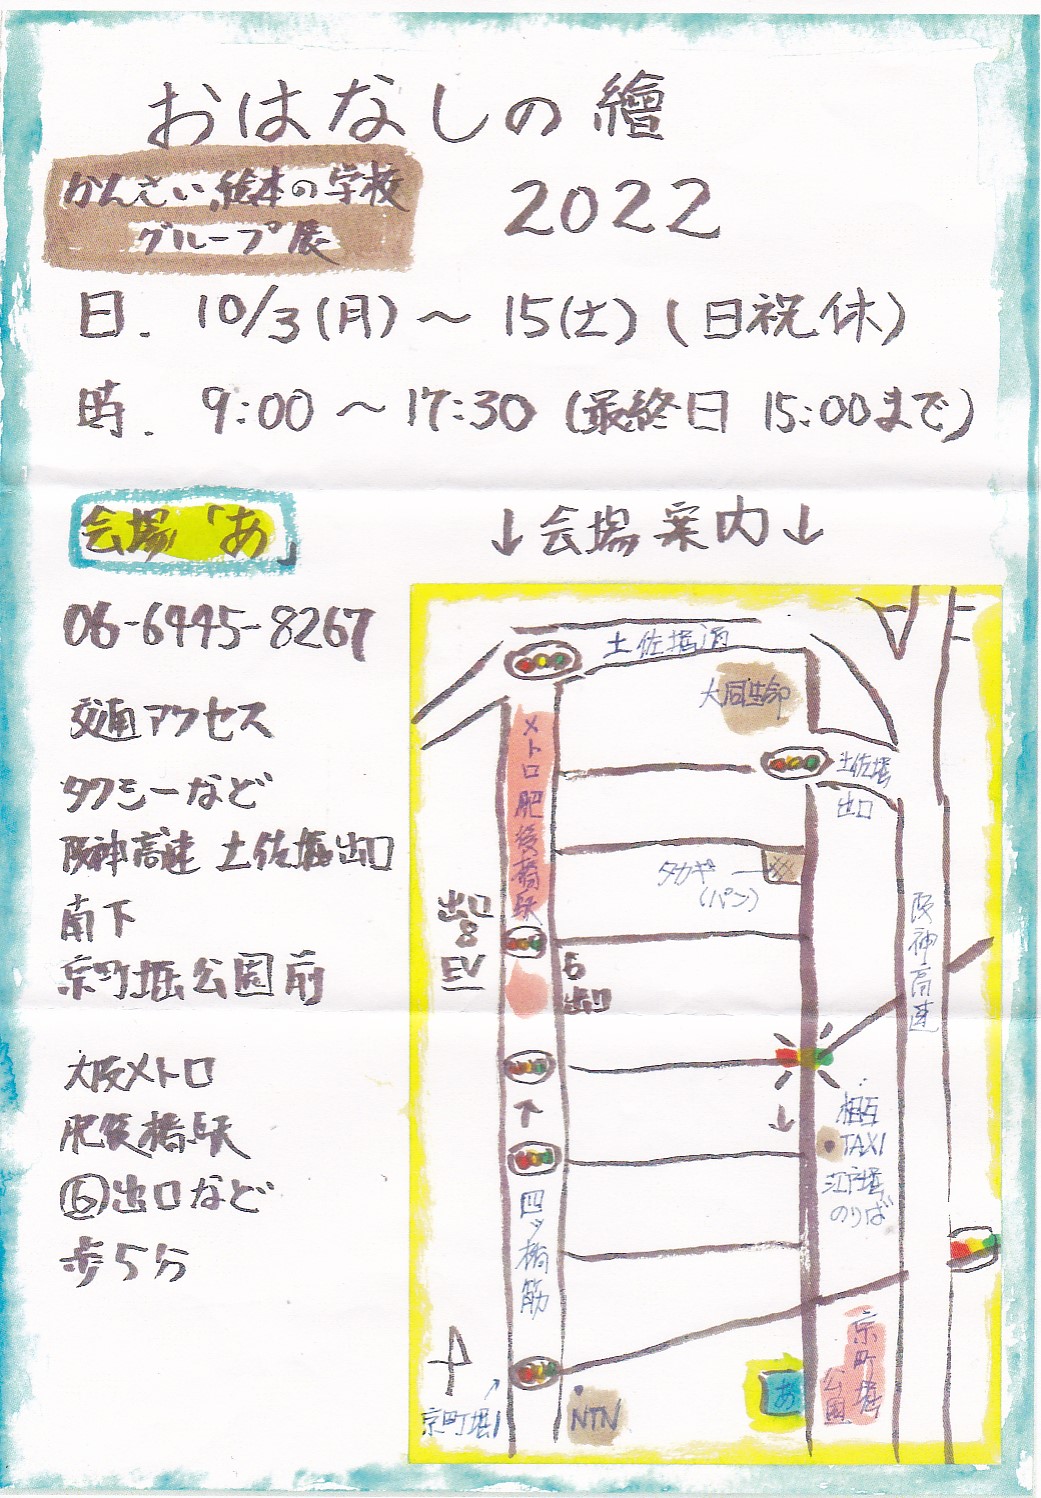 おはなしの繪
かんさい絵本の学校
グループ展
2022
日. 10/3(月)～15(土)(日祝休)
時. 9:00～17:30(最終日 15:00まで)
会場「あ」
↓会場案内↓
06-6445-8267
交通アクセス
タクシーなど
阪神高速 土佐堀出口
南下
京町堀公園前
大阪メトロ
肥後橋駅
⑥出口など
歩5分
土佐堀通
大同生命
メトロ肥後橋駅
土佐堀
出口
タカギ
(パン)
阪神高速
出口
8
EV
6
出口
相互
TAXI
江戸堀
のりば
↑
↓
四ツ橋筋
京町堀
公園
あ
NTN
京町堀1